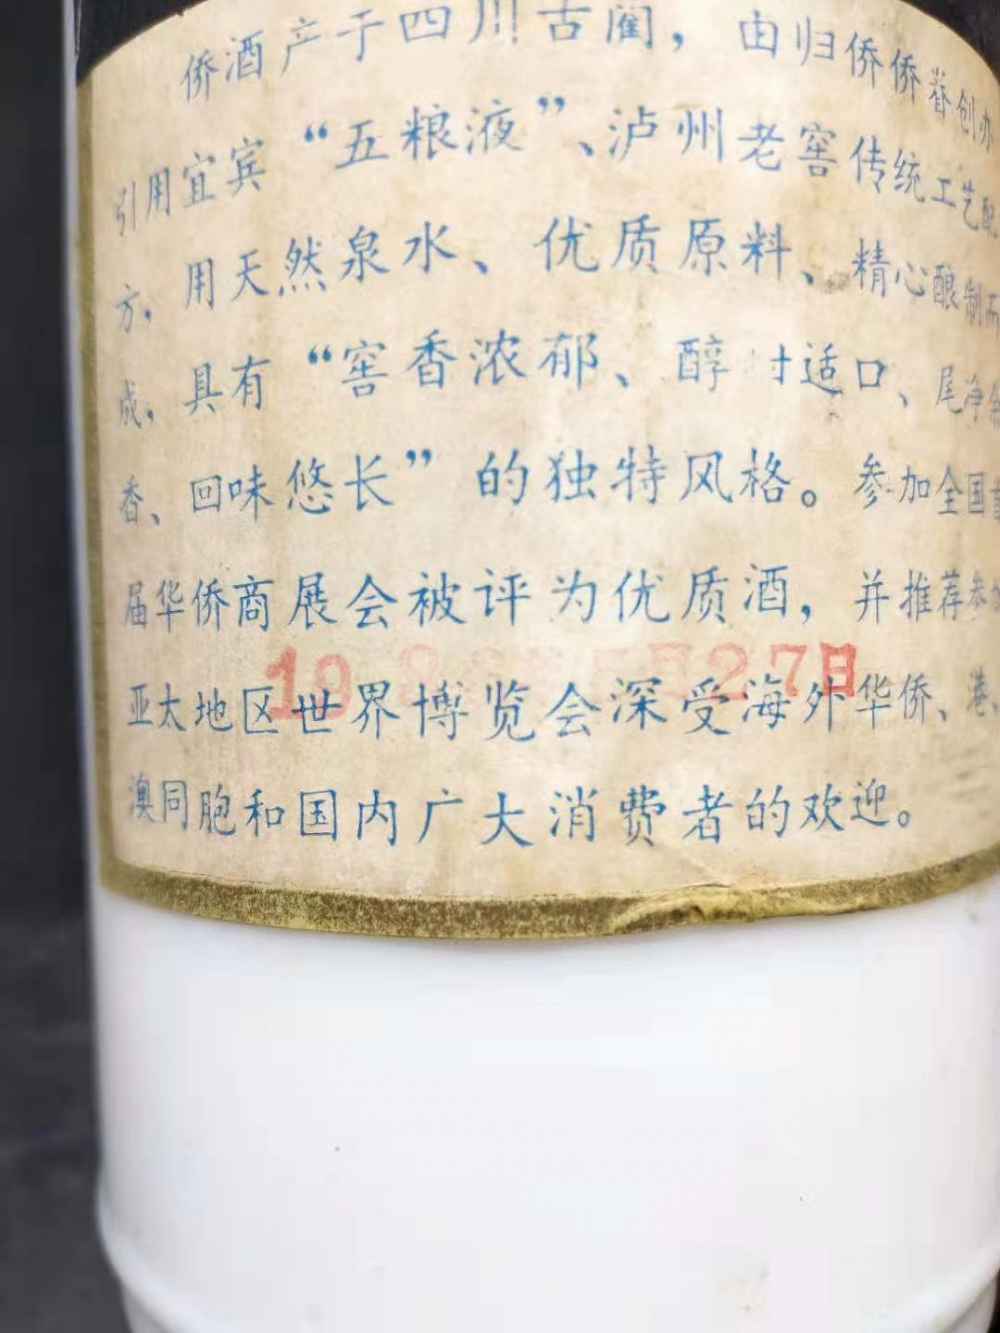 侨酒产于四川古蔺，由归侨侨眷创办
引用宜宾“五粮液”、泸州老窖传统工艺配
方，用天然泉水、优质原料、精心酿制而
成，具有“窖香浓郁、醇 适口、尾净
香、回味悠长”的独特风格。参加全国
届华侨商展会被评为优质酒，并推荐参
19 27日
亚太地区世界博览会深受海外华侨、港、
澳同胞和国内广大消费者的欢迎。